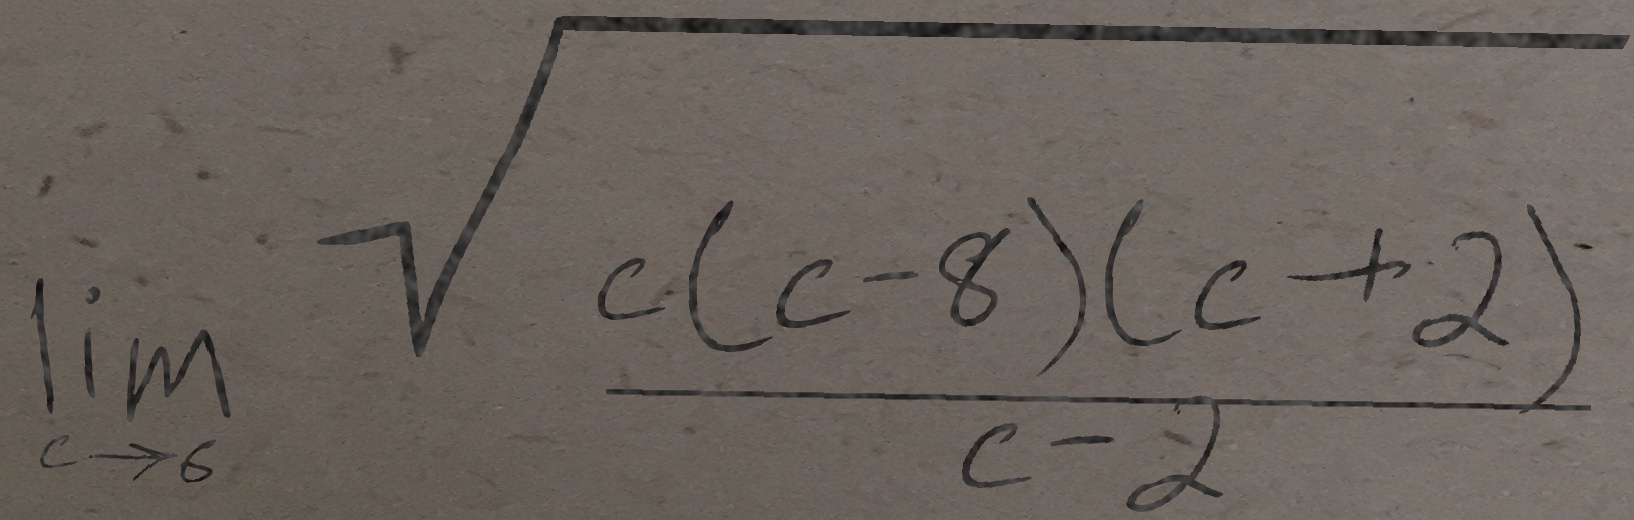 \lim_{c \to 6} \sqrt{\frac{c(c-8)(c+2)}{c-2}}